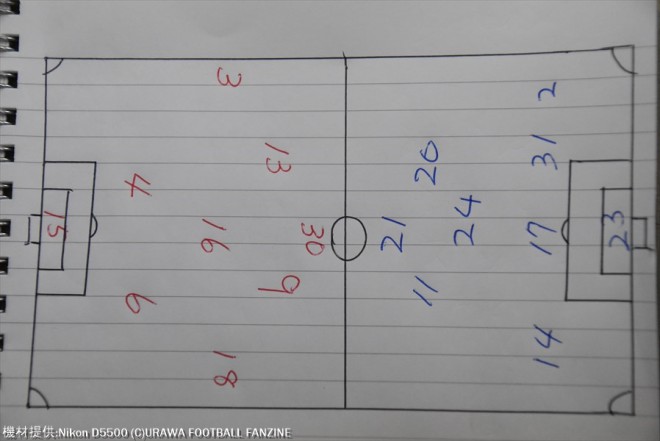 3
13
4
16
15
30
9
6
18
2
31
20
24
21
17
23
11
14
機材提供:Nikon D5500 (C)URAWA FOOTBALL FANZINE